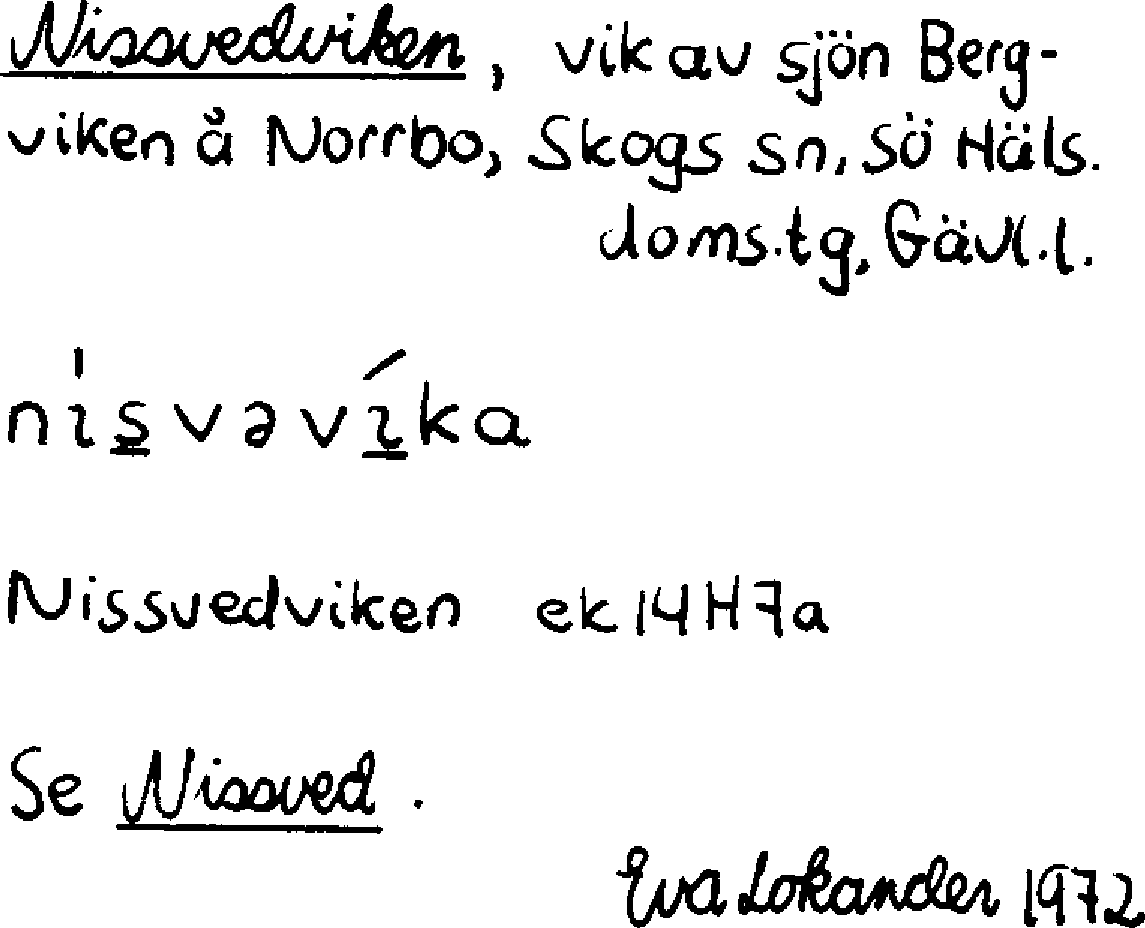 Nissvedviken, vik av sjön Berg-
viken å Norrbo, Skogs sn, Sö Häls.
doms.tg, Gävl.l.
nisvəvíka
Nissvedviken ek 14H7a
Se Nissved.
Eva Lokander 1972